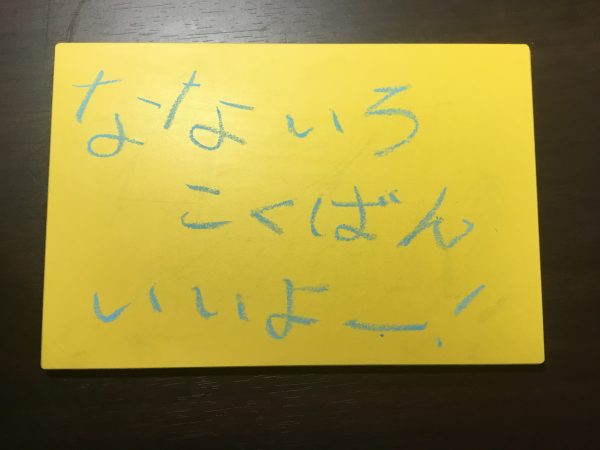 なないろ
こくばん
いいよー!